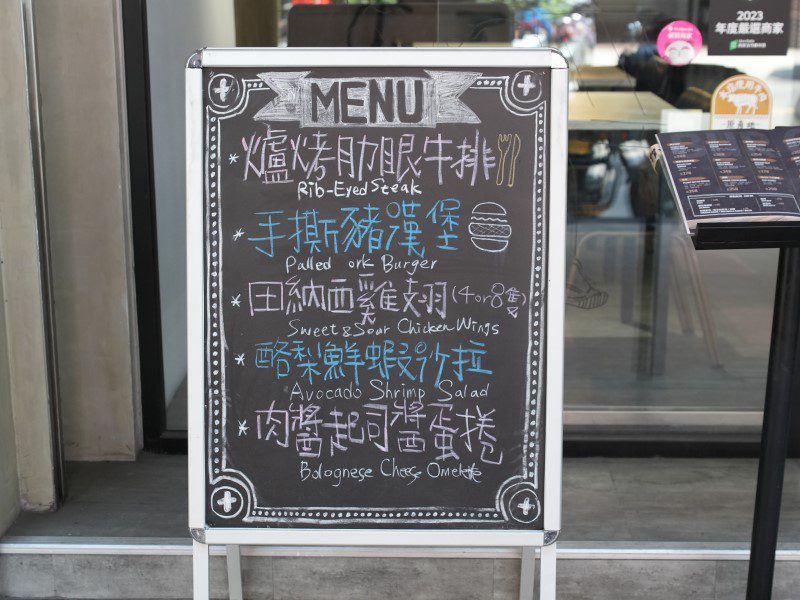 2023
年度嚴選商家
MENU
*爐烤肋眼牛排
Rib-Eyed Steak
*手撕豬漢堡
Pulled ork Burger
*田納西雞翅(4 or 8隻)
Sweet & Sour Chicken Wings
*酪梨鮮蝦沙拉
Avocado Shrimp Salad
*肉醬起司醬蛋捲
Bolognese Cheese Omelette